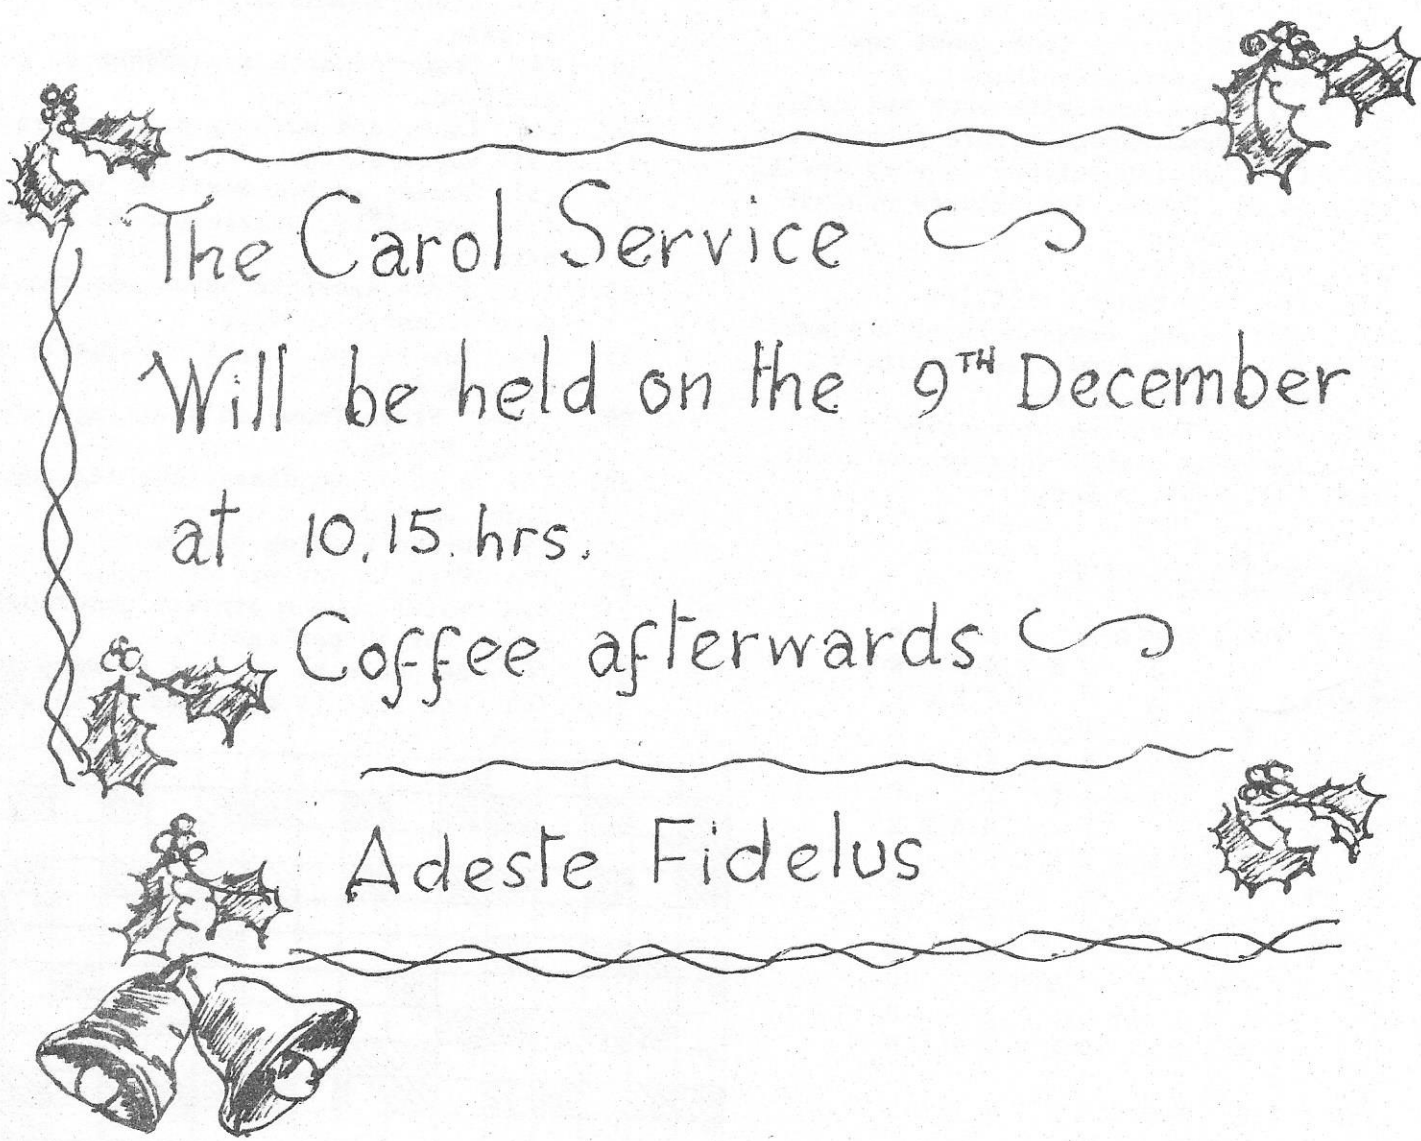 The Carol Service
Will be held on the 9TH December
at 10.15.hrs.
Coffee afterwards
Adeste Fidelus